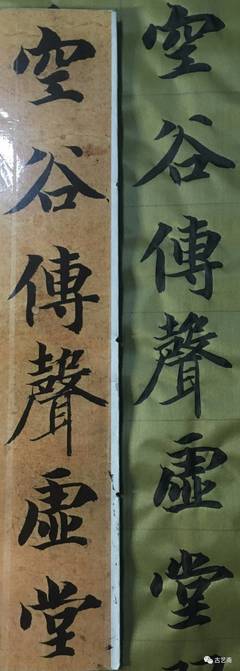 空谷傳聲虛堂
空谷傳聲虛堂
古艺斋